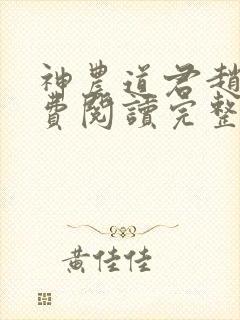 神農道君趙
費閱讀完整
黃佳佳